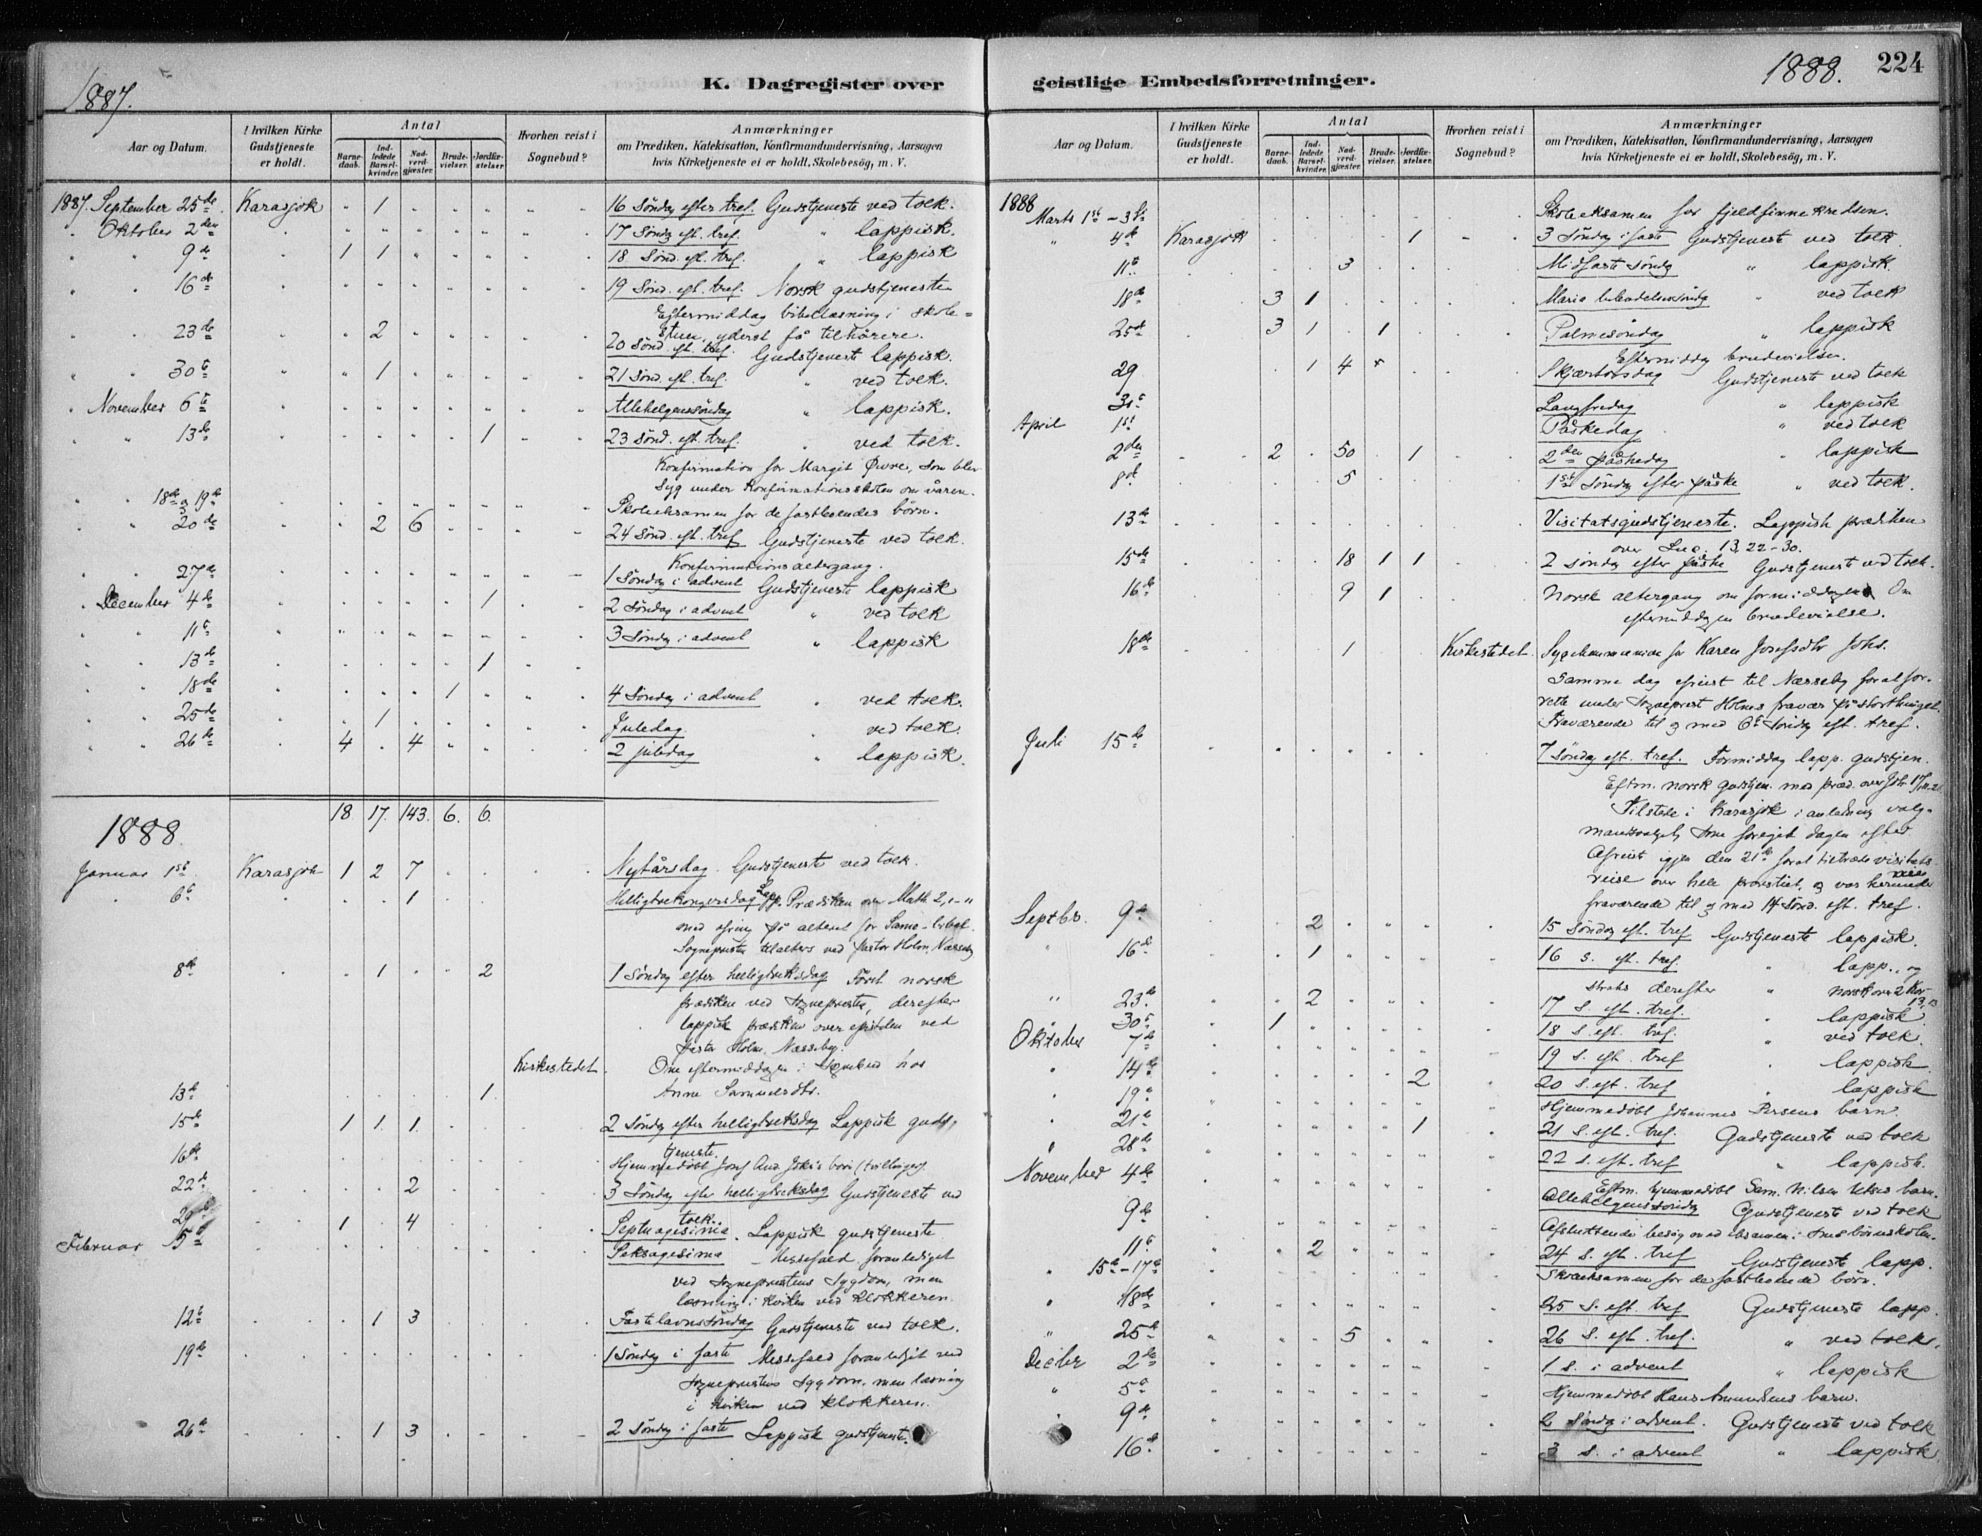 1887.
K. Dagregister over
Aar og Datum.
I hvilken Kirke Gudstjeneste er holdt.
Antal
Barnedaab.
Indledede Barselkvinder.
Nadverdgjæster.
Brudevielser.
Jordfæstelser.
Hvorhen reist i Sognebud?
Anmærkninger
om Prædiken, Katekisation, Konfirmandundervisning, Aarsagen
hvis Kirketjeneste ei er holdt, Skolebesög, m. V.
1887. September 25de Karasjok " 1 " " " 16 Søndag efter tref. Gudstjeneste ved tolk.
" Oktober 2den " " " " " " 17 Søndg eft. tref. " lappisk.
" " 9de " 1 1 " " " 18 Sønd. eft. tref. " lappisk
" " 16de " " " " " " 19 Sønd. eft. tref. Norsk gudstjeneste
Eftermiddag bibellæsning i skole=
stuen, yderst få tilhørere.
" " 23de " " 2 " " " 20 Sønd. eft. tref. Gudstjeneste lappisk.
" " 30te " " 1 " " " 21 Sønd. eft. tref. " ved tolk.
" November 6te " " " " " " Allehelgenssøndag " lappisk.
" " 13de " " " " " 1 23 Sønd. eft. tref. " ved tolk.
Konfirmation for Margit Øvre, som blev
syg under konfirmationsskolen om våren.
" " 18de og 19de Skoleeksamen for de fastboendes børn.
" " 20de " " 2 6 " " 24 Sønd. eft. tref Gudstjeneste ved tolk.
Konfirmationsaltergang.
" " 27de 1 Søndag i advent Gudstjeneste lappisk
" December 4de " " " " " 1 2 Søndag i advent " ved tolk
" " 11te " " " " " " 3 Søndag i advent " lappisk
" " 13de " " " " 1
" " 18de " " " 1 " 4 Søndag i advent " ved tolk.
" " 25de " 1 " " " Juledag " ved tolk.
" " 26de 4 " 4 " " 2 juledag " lappisk.
18 17. 143. 6. 6.
1888
Januar 1ste Karasjok 1 2 7 Nytårsdag. Gudstjeneste ved tolk.
" 6te 1 Helligtrekongersdag Lapp. Prædiken over Math 2,
med ofring på alteret for
Sognepresten tilalters ved pastor Holm, Næsseby
8de 1 2 1 Søndag efter helligtrekdag Først norsk
prædiken ved sognepresten, derefter
lappisk prædiken over epistelen ved
Pastor Holm, Næsseby.
Kirkestedet. Om eftermiddagen i sognebud hos
Anne Samuelsdtr.
13de 1
15de 1 1 1 2 Søndag efter helligtrekdag Lappisk guds-
tjeneste.
16de Hjemmedøbt Josef And. børn (tvillinger)
22de 2 3 Søndag efter helligtrekdag Gudstjeneste ved
tolk.
29de 1 4 Septuagesima. Lappisk gudstjeneste
Februar 5te Seksagesima – Messefald foranlediget
ved sogneprestens sygdom, men
læsning i kirken ved klokkeren.
12te 1 3 Fastelavnssøndag Gudstjeneste ved tolk.
19de 1 Søndag i faste Messefald foranlediget ved
sogneprestens sygdom, men læsning
i kirken ved klokkeren.
26de 1 3 2 Søndag i faste Lappisk gudstjeneste.
geistlige Embedsforretninger.
1888. 224
Aar og Datum.
I hvilken Kirke Gudstjeneste er holdt.
Antal
Barnedaab.
Indledede Barselkvinder.
Nadverdgjæster.
Brudevielser.
Jordfæstelser.
Hvorhen reist i Sognebud?
Anmærkninger
om Prædiken, Katekisation, Konfirmandundervisning, Aarsagen
hvis Kirketjeneste ei er holdt, Skolebesög, m. V.
1888
Marts 1ste – 3die Skoleeksamen for fjeldfinnekredsen.
" 4de Karasjok 1 3 Søndag i faste Gudstjeneste ved tolk.
11te 3 Midfaste Søndg " lappisk.
18de 3 1 Maria bebudelsessøndg " ved tolk
25de 3 1 1 Palmesøndag " lappisk
Eftermiddag brudevielser.
29 1 4 Skjærtorsdag Gudstjeneste ved tolk
30te Langfredag " lappisk
April 1ste Påskedag " ved tolk
2den 2 50 1 2den påskedag " lappisk
8de 5 1ste Søndag efter påske " ved tolk.
13de Visitatsgudstjeneste. Lappisk prædiken
over Luc. 13, 22–30.
15de 18 1 1 2 søndag efter påske Gudstjeneste ved tolk.
16de 9 1 Norsk altergang om formiddagen. Om
eftermiddagen brudevielse.
18de 1 Kirkestedet. Sygekommunion for Karen Josefsdtr Johs.
Samme dag afreist til Næsseby for at for-
rette under sogneprest Holms fravær på storthinget.
Fraværende til og med 6te Søndg eft. tref.
Juli 15de 7 Søndag eft. tref. Formiddag lapp. gudstjen.
Eftm. norsk gudstjen. med præd. over
Tilstede i Karasjok i anledning valg-
mandsvalget, som foregik dagen efter
Afreist igjen den 21de for at tiltræde visitats-
reise over hele provstiet, og var
fraværende til og med 14 Sønd. eft. tref.
Septbr. 9de 2 15 Søndag eft. tref Gudstjeneste lappisk.
" 16de 1 16 S. eft. tref. " lapp., og
straks derefter " norsk over 2 Kor 13,
" 23de 2 17 S. eft. tref. " lappisk
" 30te 1 18 S. eft. tref. " ved tolk.
Oktober 7de 19 S. eft. tref " lappisk.
" 14de 2 20 S. eft. tref " lappisk
" 19de Hjemmedøbt Johannes Persens barn.
" 21de 1 21 S. eft. tref. Gudstjeneste ved tolk
" 28de 22 S. eft. tref " lappisk.
Eftm. hjemmedøbt Sam. Nilsen Utsis barn.
November 4de Allehelgenssøndag Gudstjeneste ved tolk
9de Afsluttende besøg med eksamen i småbørnsskolen.
11te 2 24 S. eft. tref Gudstjeneste lapp.
" 15de–17de Skoleeksamen for de fastboende børn.
" 18de 25 S. eft. tref Gudstjeneste lapp.
" 25de 5 26 S. eft. tref. " ved tolk.
Decbr 2den 1 S. i advent " lappisk
" 5te Hjemmedøbt Hans Amundsens barn.
" 9de 2 Søndg i advent. Gudstjeneste ved tolk
16de 3 S. i advent " lappisk